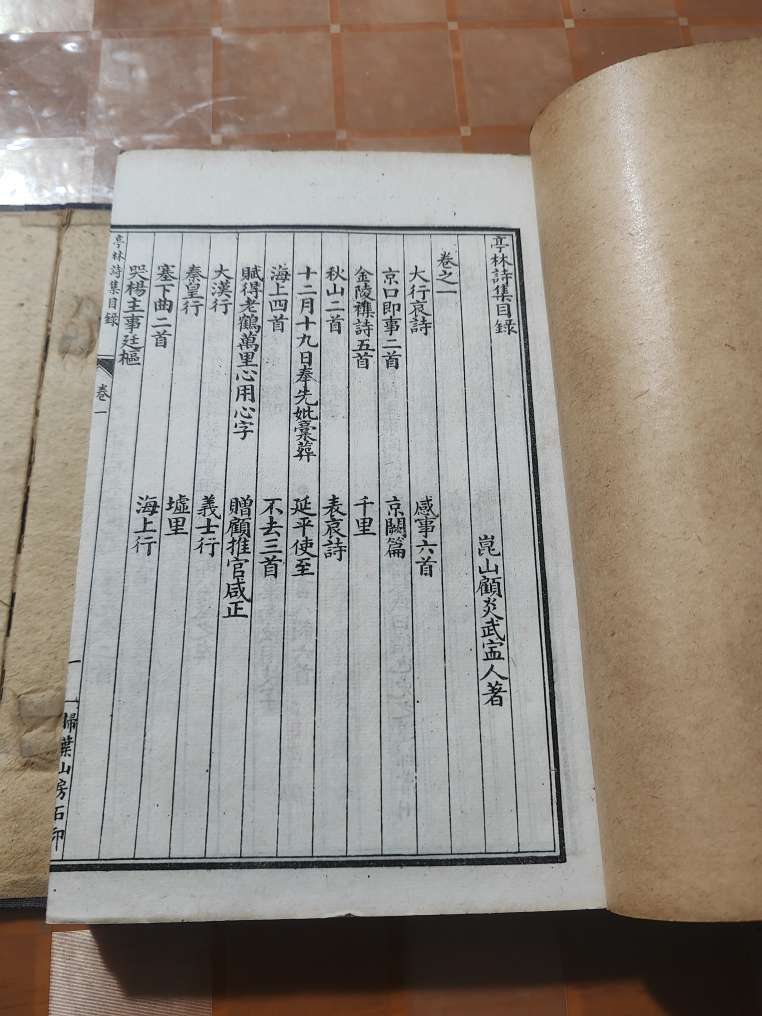 亭林詩集目錄
崑山顧炎武寍人著
卷之一
大行哀詩 感事六首
京口即事二首 京闕篇
金陵襍詩五首 千里
秋山二首 表哀詩
十二月十九日奉先妣藁葬 延平使至
海上四首 不去三首
賦得老鶴萬里心用心字 贈顧推官咸正
大漢行 義士行
秦皇行 墟里
塞下曲二首 海上行
哭楊主事廷樞
亭林詩集目錄 卷一 一 掃葉山房石印